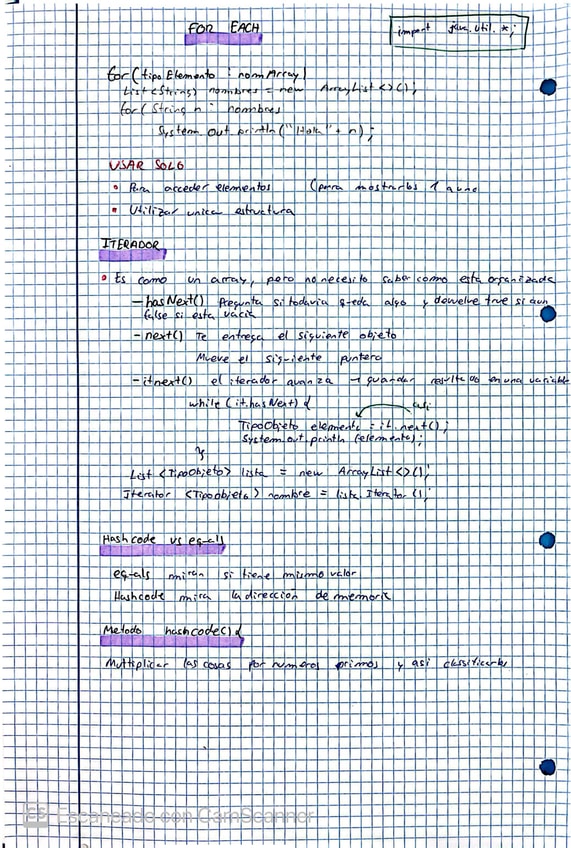 FOR EACH
import java.util.*;
for(tipoElemento : nomArray)
List<String> nombres = new ArrayList<>();
for(String n : nombres
System.out.println("Hola" + n);
USAR SOLO
• Para acceder elementos (para mostrarlos 1 a uno
• Utilizar unica estructura
ITERADOR
• Es como un array, pero no necesito saber como esta organizada
- hasNext() Pregunta si todavia queda algo y devuelve true si aun
false si esta vacia
- next() Te entrega el siguiente objeto
Mueve el siguiente puntero
- itnext() el iterador avanza → guardar resultado en una variable
while(it.hasNext) {
asi
TipoObjeto elemento = it.next();
System.out.println(elemento);
}
List <TipoObjeto> lista = new ArrayList<>();
Iterator <TipoObjeto> nombre = lista.Iterator();
Hashcode vs equals
equals miran si tiene mismo valor
Hashcode mira la direccion de memoria
Metodo hashcode() {
Multiplicar las cosas por numeros primos y asi classificarlos
CS Escaneado con CamScanner